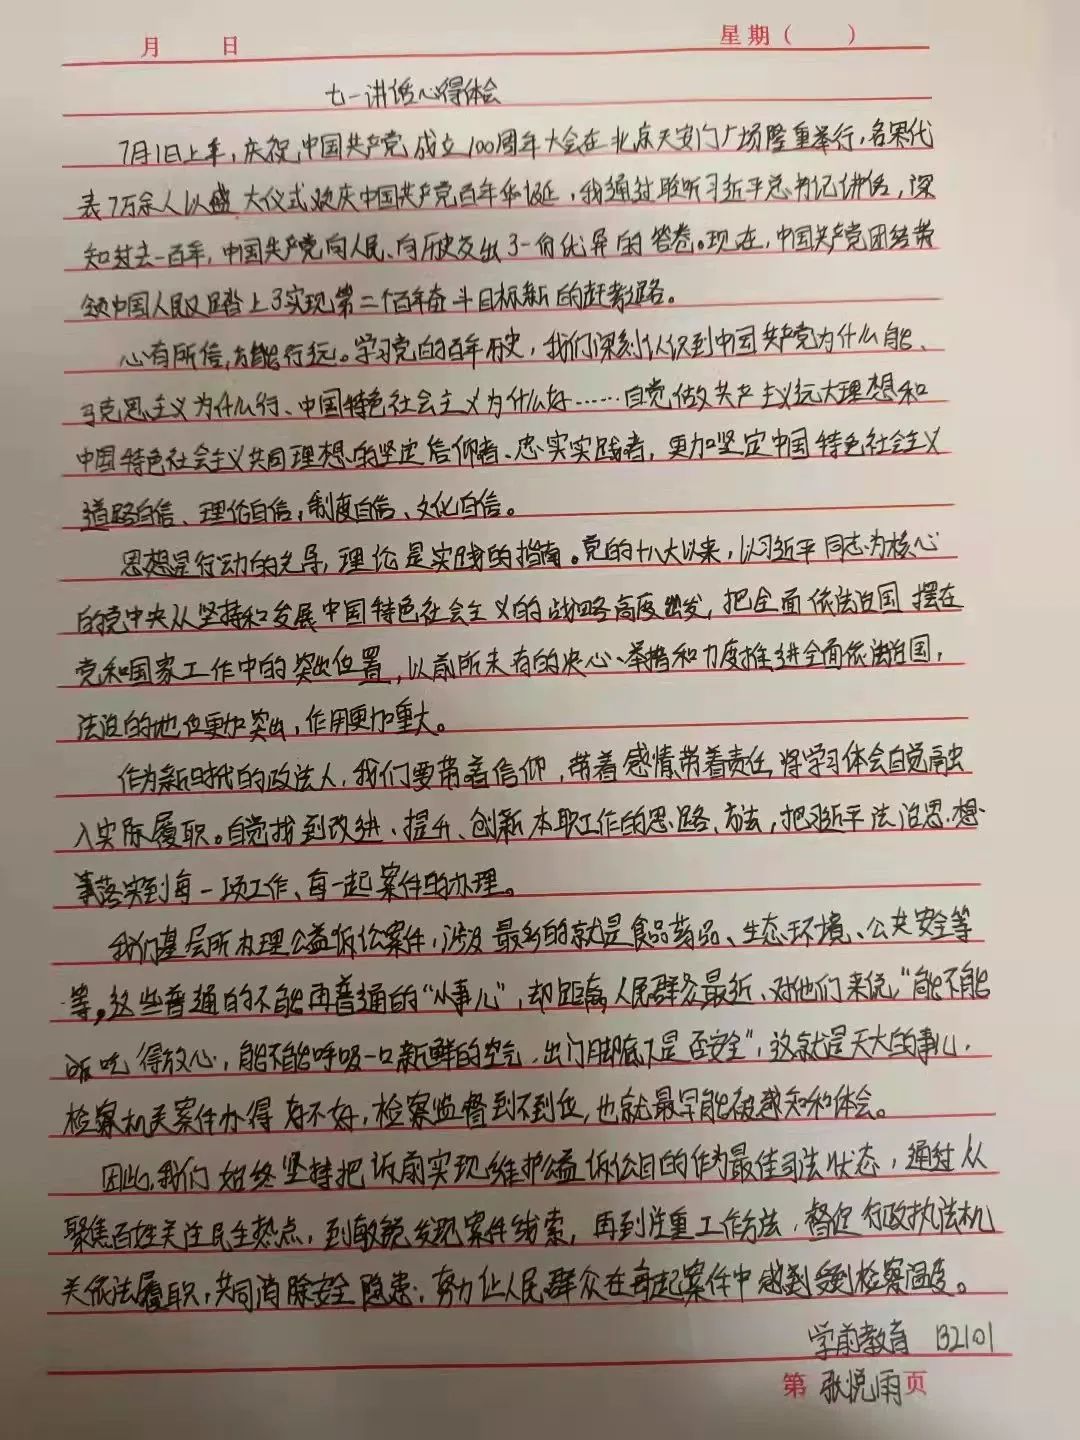 月 日 星期( )
七一讲话心得体会
7月1日上午，庆祝中国共产党成立100周年大会在北京天安门广场隆重举行，各界代
表7万余人以盛大仪式欢庆中国共产党百年华诞，我通过聆听习近平总书记讲话，深
知过去一百年，中国共产党向人民、向历史交出了一份优异的答卷。现在，中国共产党团结带
领中国人民又踏上了实现第二个百年奋斗目标新的赶考之路。
心有所信，方能行远。学习党的百年历史，我们深刻认识到中国共产党为什么能、
马克思主义为什么行、中国特色社会主义为什么好……自觉做共产主义远大理想和
中国特色社会主义共同理想的坚定信仰者、忠实实践者，更加坚定中国特色社会主义
道路自信、理论自信，制度自信、文化自信。
思想是行动的先导，理论是实践的指南。党的十八大以来，以习近平同志为核心
的党中央从坚持和发展中国特色社会主义的战略高度出发，把全面依法治国摆在
党和国家工作中的突出位置，以前所未有的决心、举措和力度推进全面依法治国，
法治的地位更加突出，作用更加重大。
作为新时代的政法人，我们要带着信仰，带着感情带着责任，将学习体会自觉融
入实际履职。自觉找到改进、提升、创新本职工作的思路、方法，把习近平法治思想
落实到每一项工作、每一起案件的办理。
我们基层所办理公益诉讼案件，涉及最多的就是食品药品、生态环境、公共安全等
等。这些普通的不能再普通的“小事儿”，却距离人民群众最近、对他们来说“能不能
吃得放心，能不能呼吸一口新鲜的空气，出门脚底下是否安全”，这就是天大的事儿，
检察机关案件办得好不好，检察监督到不到位，也就最早能被感知和体会。
因此，我们始终坚持把诉前实现维护公益诉讼目的作为最佳司法状态，通过从
聚焦百姓关注民生热点，到敏锐发现案件线索，再到注重工作方法，督促行政执法机
关依法履职，共同消除安全隐患；努力让人民群众在每起案件中感到受到检察温度。
学前教育 B2101
第 张悦雨 页